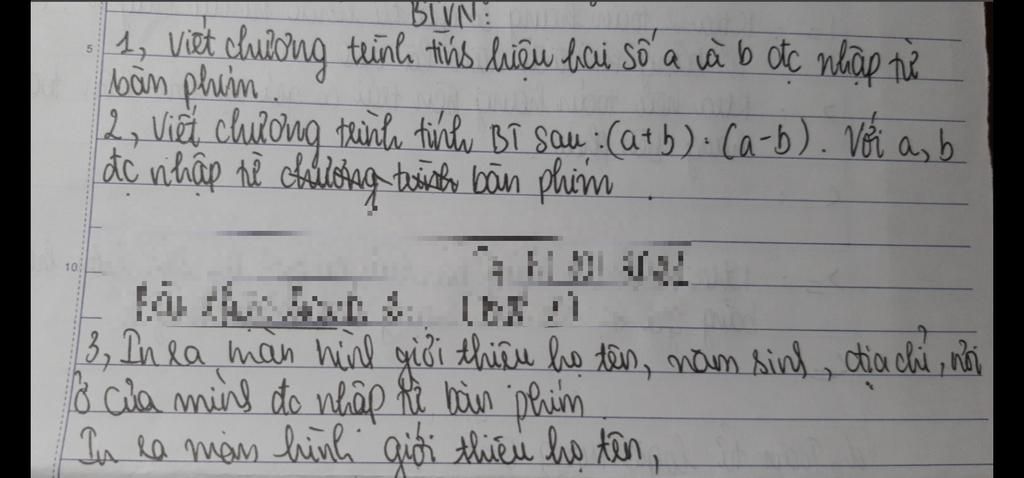 BTVN:
1, Viết chương trình tính hiệu hai số a và b đc nhập từ
bàn phím.
2, Viết chương trình tính BT sau: (a+b).(a-b). Với a, b
đc nhập từ chương trình bàn phím.
3, In ra màn hình giới thiệu họ tên, năm sinh, địa chỉ, nơi
ở của mình đc nhập từ bàn phím
In ra màn hình giới thiệu họ tên,
5
10